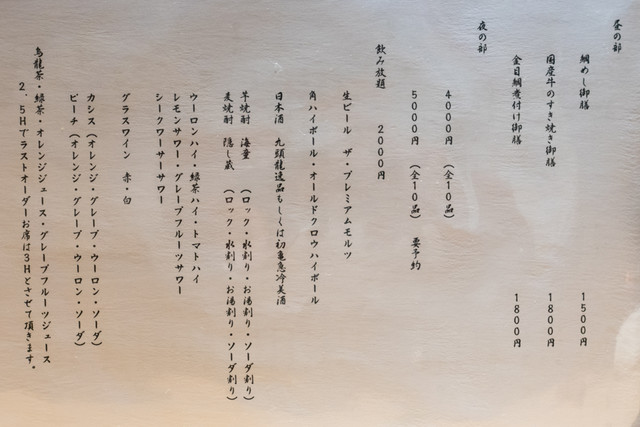 昼の部
鯛めし御膳 1500円
国産牛のすき焼き御膳 1800円
金目鯛煮付け御膳 1800円
夜の部
4000円 (全10品)
5000円 (全10品) 要予約
飲み放題 2000円
生ビール ザ・プレミアムモルツ
角ハイボール・オールドクロウハイボール
日本酒 九頭龍逸品もしくは初亀急冷美酒
芋焼酎 海童 (ロック・水割り・お湯割り・ソーダ割り)
麦焼酎 隠し蔵 (ロック・水割り・お湯割り・ソーダ割り)
ウーロンハイ・緑茶ハイ・トマトハイ
レモンサワー・グレープフルーツサワー
シークワーサーサワー
グラスワイン 赤・白
カシス(オレンジ・グレープ・ウーロン・ソーダ)
ピーチ(オレンジ・グレープ・ウーロン・ソーダ)
烏龍茶・緑茶・オレンジジュース・グレープフルーツジュース
2.5Hでラストオーダーお席は3Hとさせて頂きます。